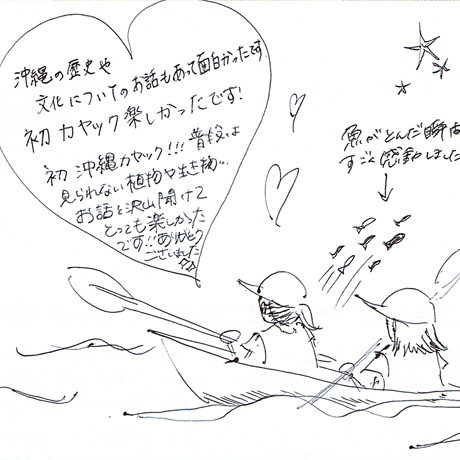 沖縄の歴史や
文化についてのお話もあって面白かったです
初カヤック楽しかったです!
初沖縄カヤック!!!普段は
見られない植物や生き物…
お話も沢山聞けて
とっても楽しかった
です!!ありがとう
ございました
魚がとんだ瞬間
すごく感動しました